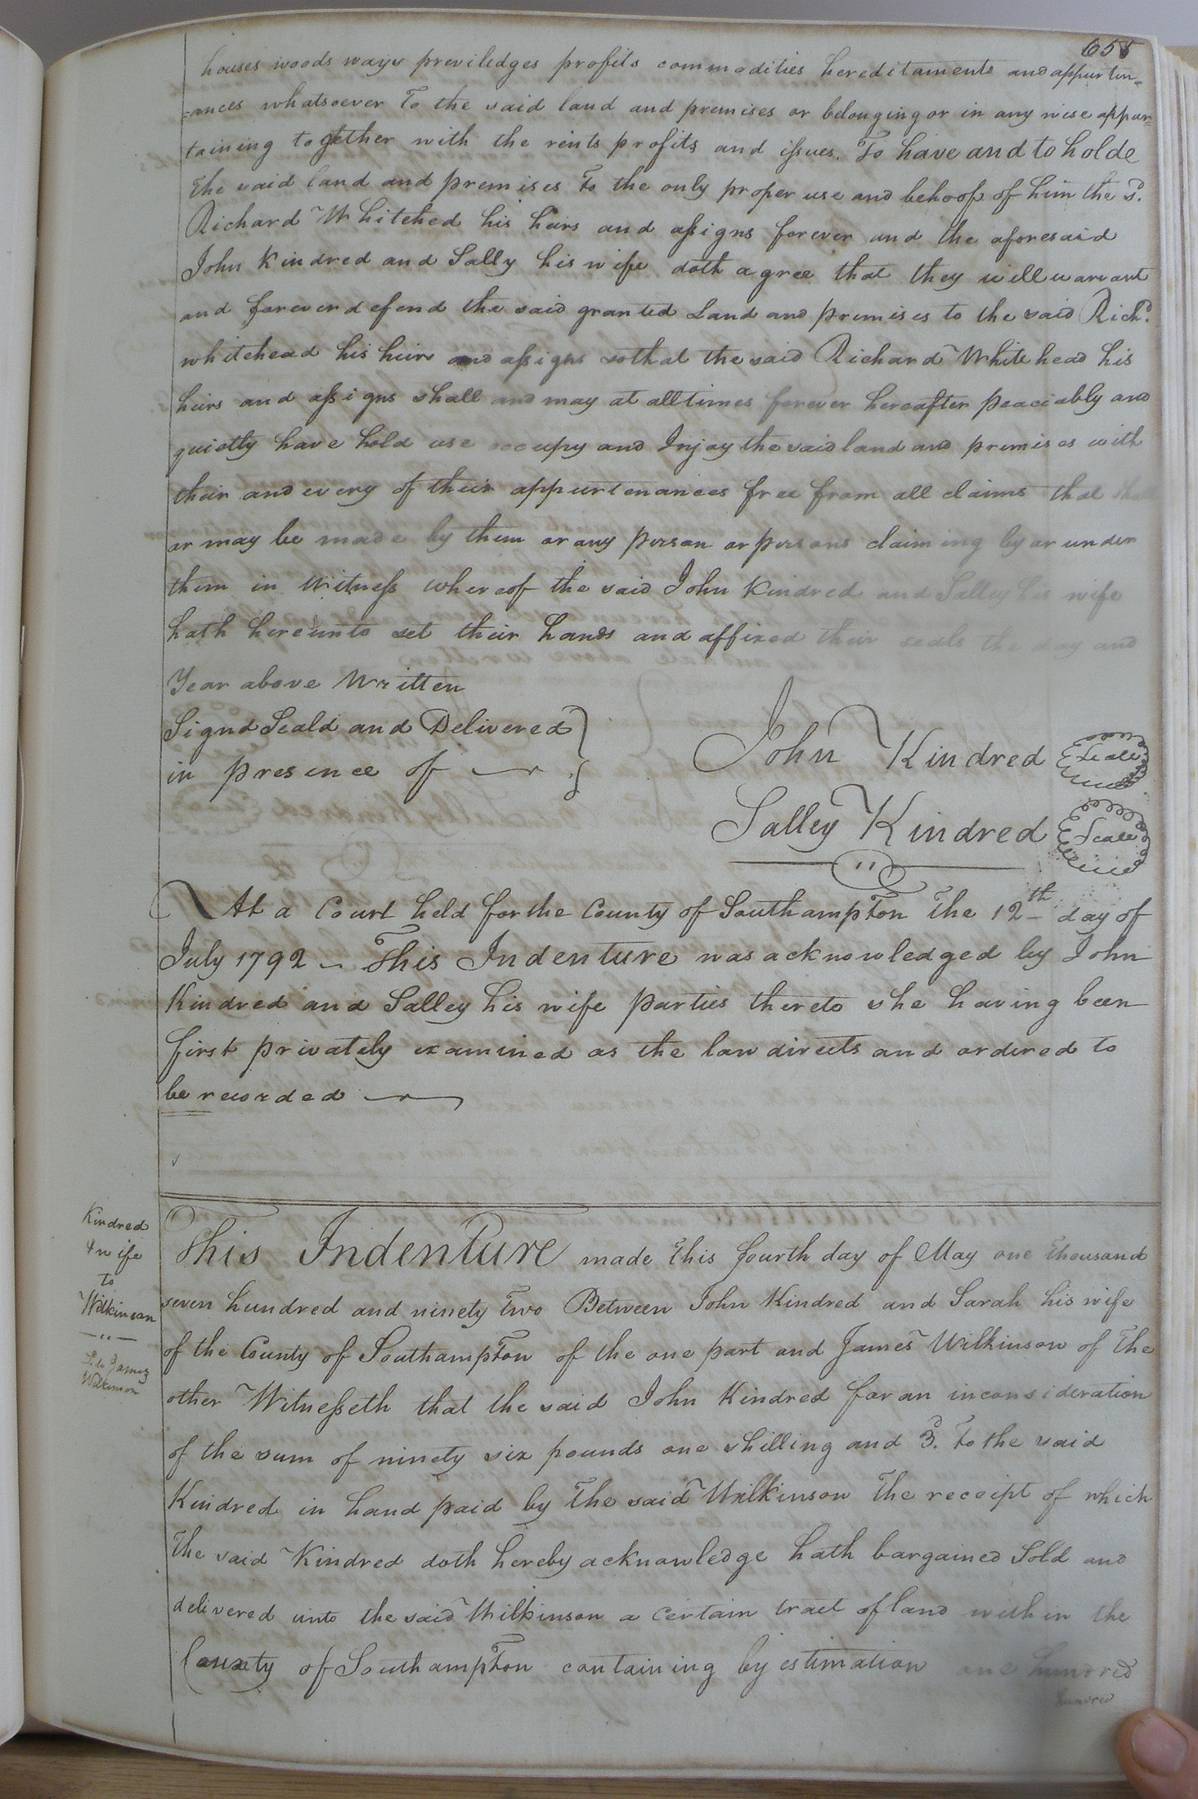 655
houses woods ways previledges profits commodities hereditaments and appurten=
=ances whatsoever To the said land and premises or belonging or in any wise appur=
taining together with the rents profits and issues. To have and to holde
the said land and premises To the only proper use and behoof of him the sd.
Richard Whitehed his heirs and assigns forever and the aforesaid
John Kindred and Sally his wife doth agree that they will warrant
and forever defend the said granted Land and premises to the said Richd.
whitehead his heirs and assigns so that the said Richard Whitehead his
heirs and assigns shall and may at all times forever hereafter peaceably and
quietly have hold use occupy and Injoy the said land and premises with
their and every of their appurtenances free from all claims that shall
or may be made by them or any person or persons claiming by or under
them in Witness whereof the said John Kindred and Salley his wife
hath hereunto set their hands and affixed their seals the day and
Year above Written
Signd Seald and Delivered
in presence of
John Kindred Seale
Salley Kindred Seale
At a Court held for the County of Southampton The 12th day of
July 1792 This Indenture was acknowledged by John
Kindred and Salley his wife parties thereto she having been
first privately examined as the law directs and ordered to
be recorded
Kindred
& wife
to
Wilkinson
James
Wilkinson
This Indenture made this fourth day of May one thousand
seven hundred and ninety Two Between John Kindred and Sarah his wife
of the County of Southampton of the one part and James Wilkinson of The
other Witnesseth that the said John Kindred for an inconsideration
of the sum of ninety six pounds one shilling and 3d. To the said
Kindred in hand paid by The said Wilkinson The receipt of which
The said Kindred doth hereby acknowledge hath bargained Sold and
delivered unto the said Wilkinson a certain tract of land with in the
County of Southampton containing by estimation one hundred
hundred